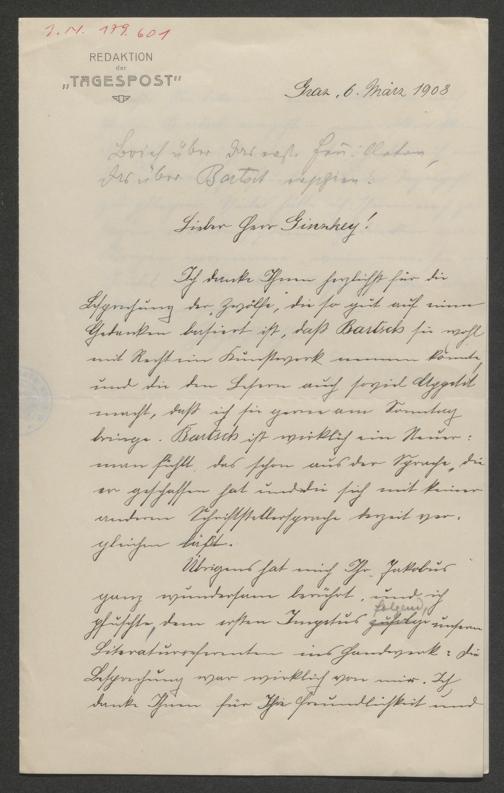 I. N. 179.601
REDAKTION
der
„TAGESPOST“
Graz, 6. März 1908
Brief über das erste Feuilleton,
das über Bartsch erschien.
Lieber Herr Ginzkey!
Ich danke Ihnen herzlichst für die
Besprechung der „Zwölfe“, die so gut auf einen
Gedanken basiert ist, daß Bartsch sie wohl
mit Recht ein Kunstwerk nennen könnte,
und die den Lesern auch soviel Appetit
macht, daß ich sie gerne am Sonntag
bringe. Bartsch ist wirklich ein Neuer:
man fühlt das schon aus der Sprache, die
er geschaffen hat und die sich mit keiner
anderen Schriftstellersprache derzeit ver-
gleichen läßt.
Übrigens hat mich Ihr Jakobus
ganz wundersam berührt, und ich
pfuschte, dem ersten Impetus folgend, unserem
Literaturreferenten ins Handwerk: die
Besprechung war wirklich von mir. Ich
danke Ihnen für Ihre Freundlichkeit und